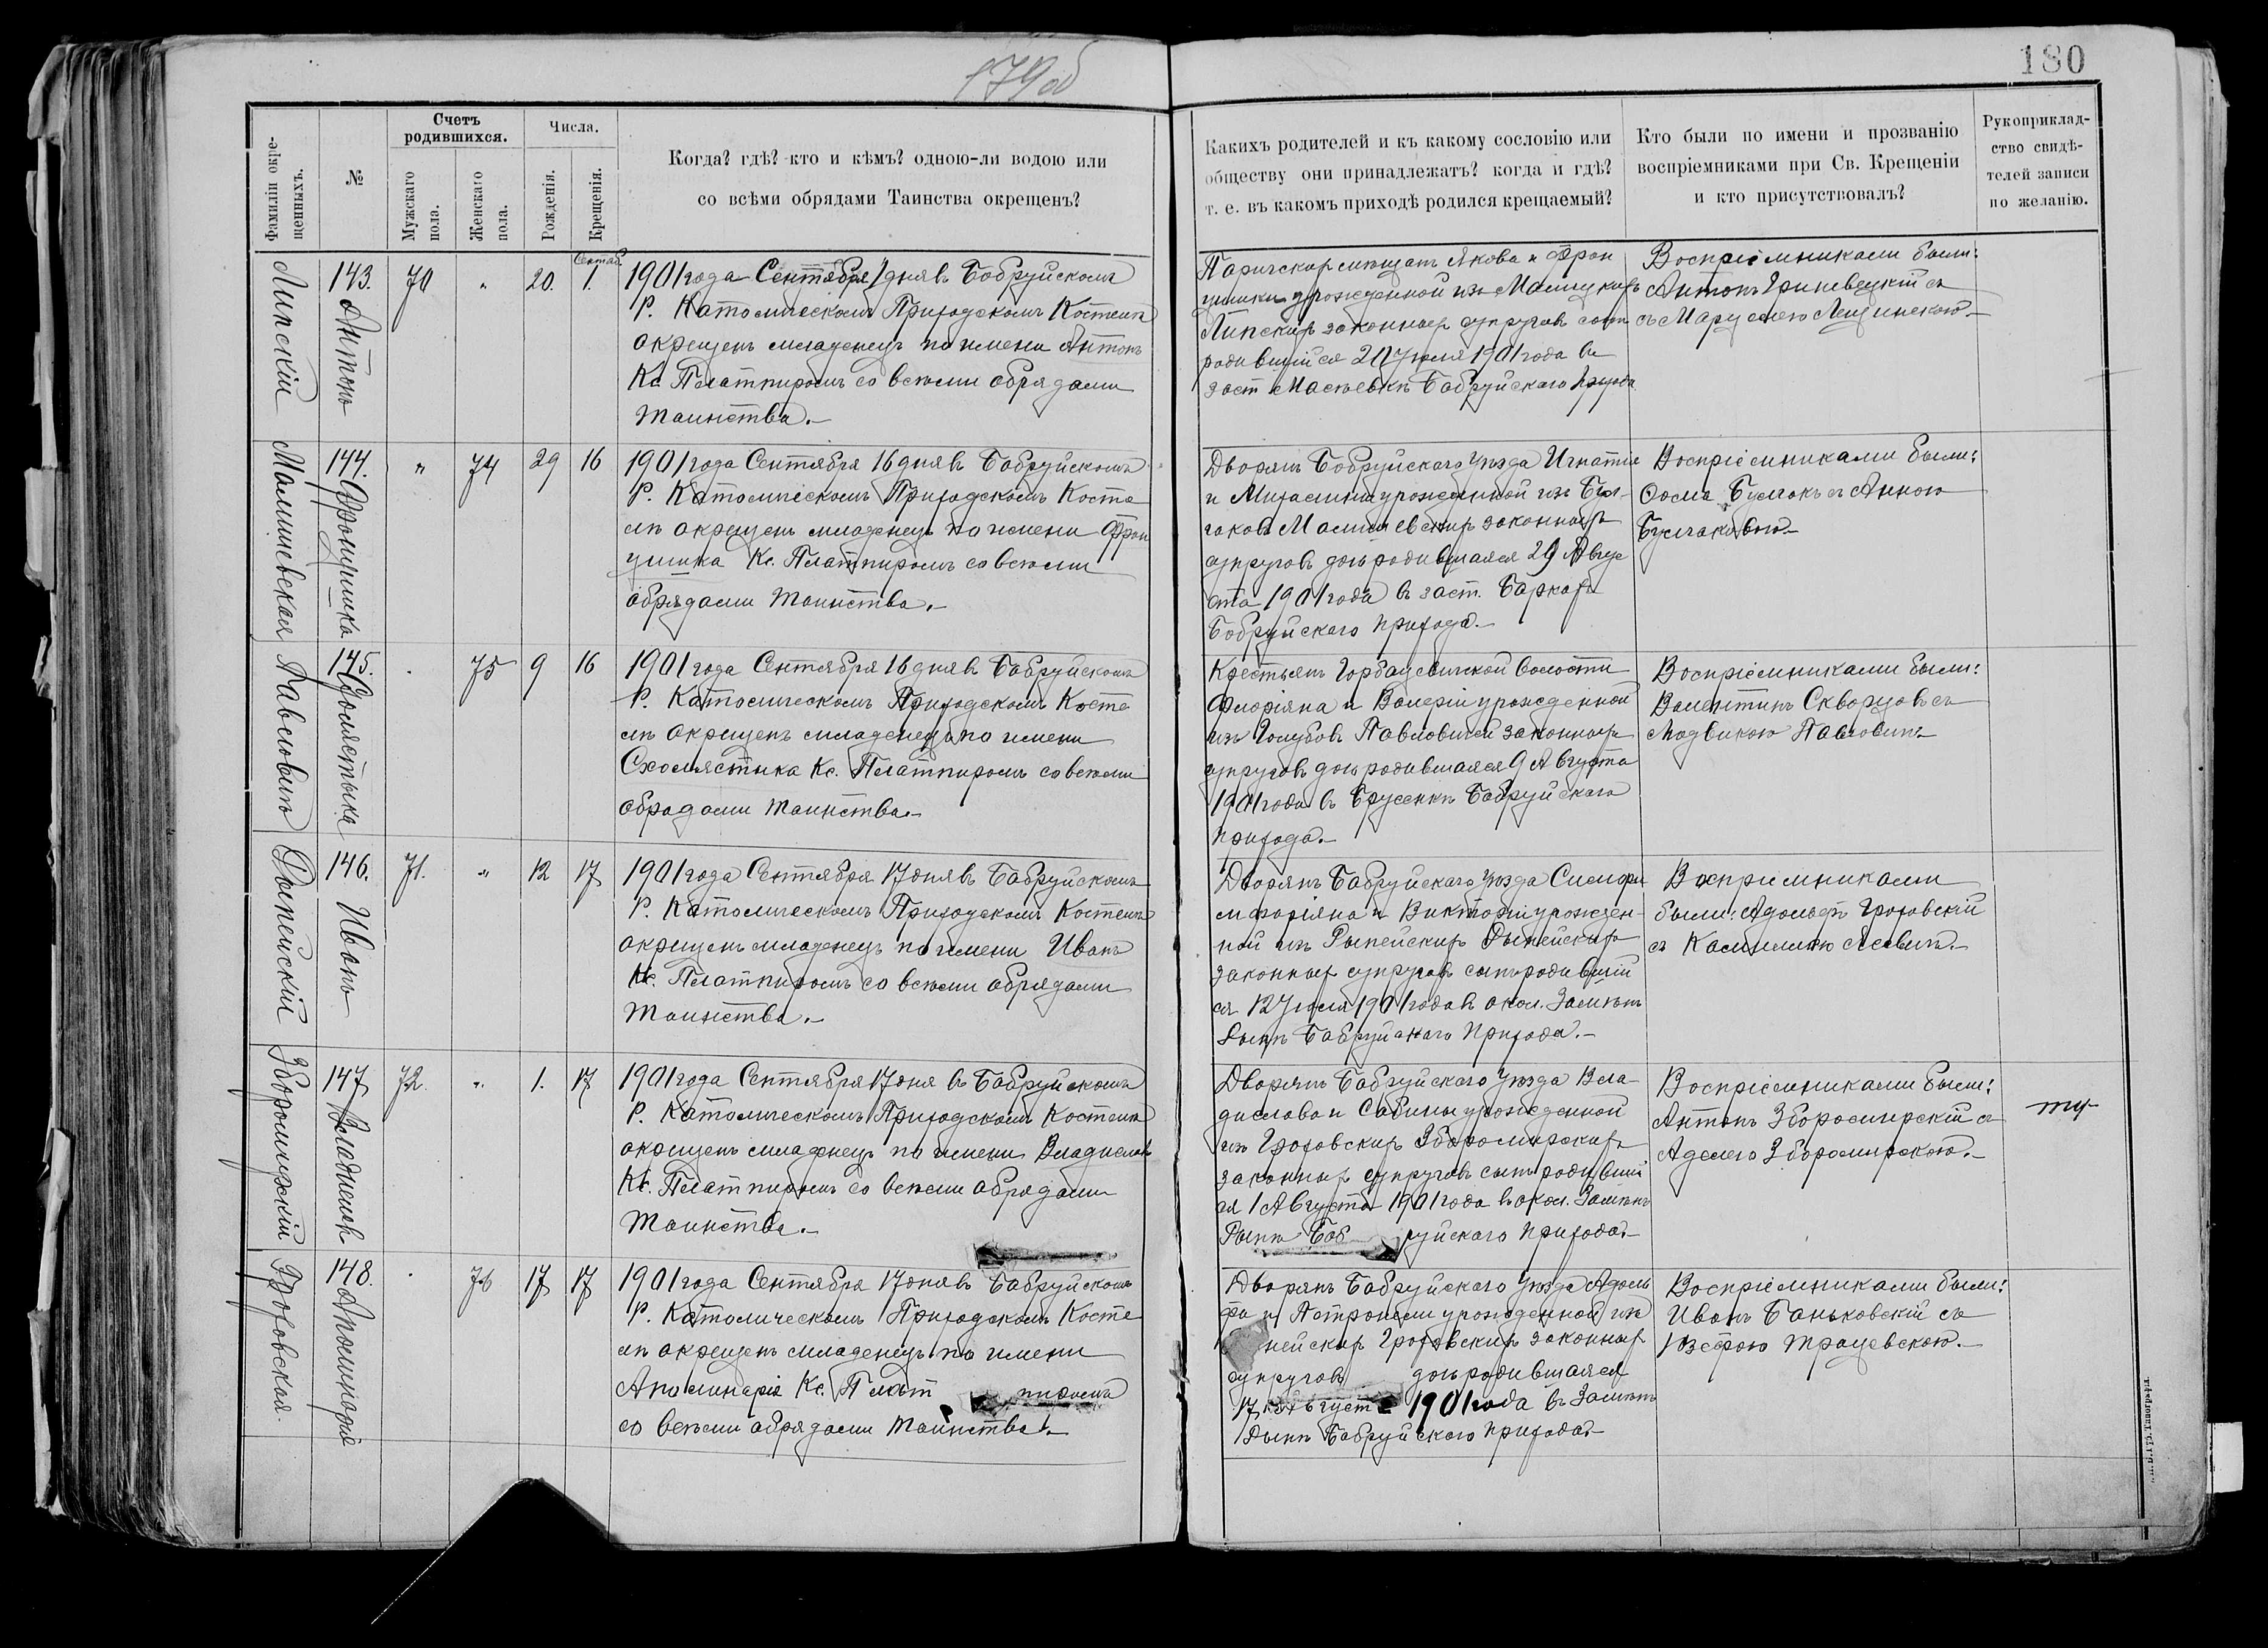 179 об
180
Фамиліи окре-
щенныхъ.
№
Счетъ
родившихся.
Мужскаго
пола.
Женскаго
пола.
Числа.
Рожденія.
Крещенія.
Когда? гдѣ? кто и кѣмъ? одною-ли водою или
со всѣми обрядами Таинства окрещенъ?
Какихъ родителей и къ какому сословію или
обществу они принадлежатъ? когда и гдѣ?
т. е. въ какомъ приходѣ родился крещаемый?
Кто были по имени и прозванію
воспріемниками при Св. Крещеніи
и кто присутствовалъ?
Рукоприклад-
ство свидѣ-
телей записи
по желанію.
Липскій
143.
Антонъ
70
"
20.
Сентяб.
1.
1901 года Сентября 1 дня въ Бобруйскомъ
Р. Католическомъ Приходскомъ Костелѣ
окрещенъ младенецъ по имени Антонъ
Кс. Плятпиромъ со всѣми обрядами
Таинства.–
Паричских мѣщанъ Якова и Фран
цишки урожденной изъ
Липскихъ законныхъ супруговъ сынъ
родившійся 20 Іюля 1901 года въ
заст Бобруйскаго прихода
Воспріемниками были:
Антонъ Гриневецкій съ
съ Марулею Лещинскою.–
Малишевская
144.
Францишка
"
74
29
16
1901 года Сентября 16 дня въ Бобруйскомъ
Р. Католическомъ Приходскомъ Косте
лѣ окрещенъ младенецъ по имени Фран
цишка Кс. Плятпиромъ со всѣми
обрядами Таинства.–
Дворянъ Бобруйскаго уѣзда Игнатія
и Михалины урожденной изъ Бул-
гаковъ Малишевскихъ законныхъ
супруговъ дочь родившаяся 29 Авгус
та 1901 года въ заст. Баркахъ
Бобруйскаго прихода.–
Воспріемниками были:
Фома Булгакъ съ Анною
Булгаковою.–
Павловичъ
145.
Схолястыка
"
75
9
16
1901 года Сентября 16 дня въ Бобруйскомъ
Р. Католическомъ Приходскомъ Косте
лѣ окрещенъ младенецъ по имени
Схолястыка Кс. Плятпиромъ со всѣми
обрядами Таинства.–
Крестьянъ Горбацевичской волости
Флоріяна и Валеріи урожденной
изъ Голубовъ Павловичей законныхъ
супруговъ дочь родившаяся 9 Августа
1901 года въ Бобруйскаго
прихода.–
Воспріемниками были:
Валентинъ Скворцовъ съ
Людвикою Павловичъ
Дыпейскій
146.
Иванъ
71.
"
12
17
1901 года Сентября 17 дня въ Бобруйскомъ
Р. Католическомъ Приходскомъ Костелѣ
окрещенъ младенецъ по имени Иванъ
Кс. Плятпиромъ со всѣми обрядами
Таинства.–
Дворянъ Бобруйскаго уѣзда
и Викторіи урожден-
ной изъ Рыпейскихъ Дыпейскихъ
законныхъ супруговъ сынъ родившій
ся 12 Іюля 1901 года въ окол.
Бобруйскаго прихода.–
Воспріемниками
были: Адольфъ Гроховскій
съ Камилиею
Збромирскій
147
Владиславъ
72.
"
1.
17
1901 года Сентября 17 дня въ Бобруйскомъ
Р. Католическомъ Приходскомъ Костелѣ
окрещенъ младенецъ по имени Владиславъ
Кс. Плятпиромъ со всѣми обрядами
Таинства.–
Дворянъ Бобруйскаго уѣзда Вла
дислава и Сабины урожденной
изъ Гроховскихъ Збромирскихъ
законныхъ супруговъ сынъ родивший
ся 1 Августа 1901 года въ окол.
Боб руйскаго прихода.–
Воспріемниками были:
Антонъ Збромирскій съ
Аделею Збромирскою.–
Гроховская.
148.
Аполинарія
"
76
17
17
1901 года Сентября 17 дня въ Бобруйскомъ
Р. Католическомъ Приходскомъ Косте
лѣ окрещенъ младенецъ по имени
Аполинарія Кс. Плят пиромъ
со всѣми обрядами Таинства.–
Дворянъ Бобруйскаго уѣзда Адоль
фа и Петронели урожденной изъ
нейскихъ Гроховскихъ законныхъ
супруговъ дочь родившаяся
17 Августа 1901 года въ
Бобруйскаго прихода.–
Воспріемниками были:
Иванъ Баньковскій съ
Юзефою Трацевскою.–